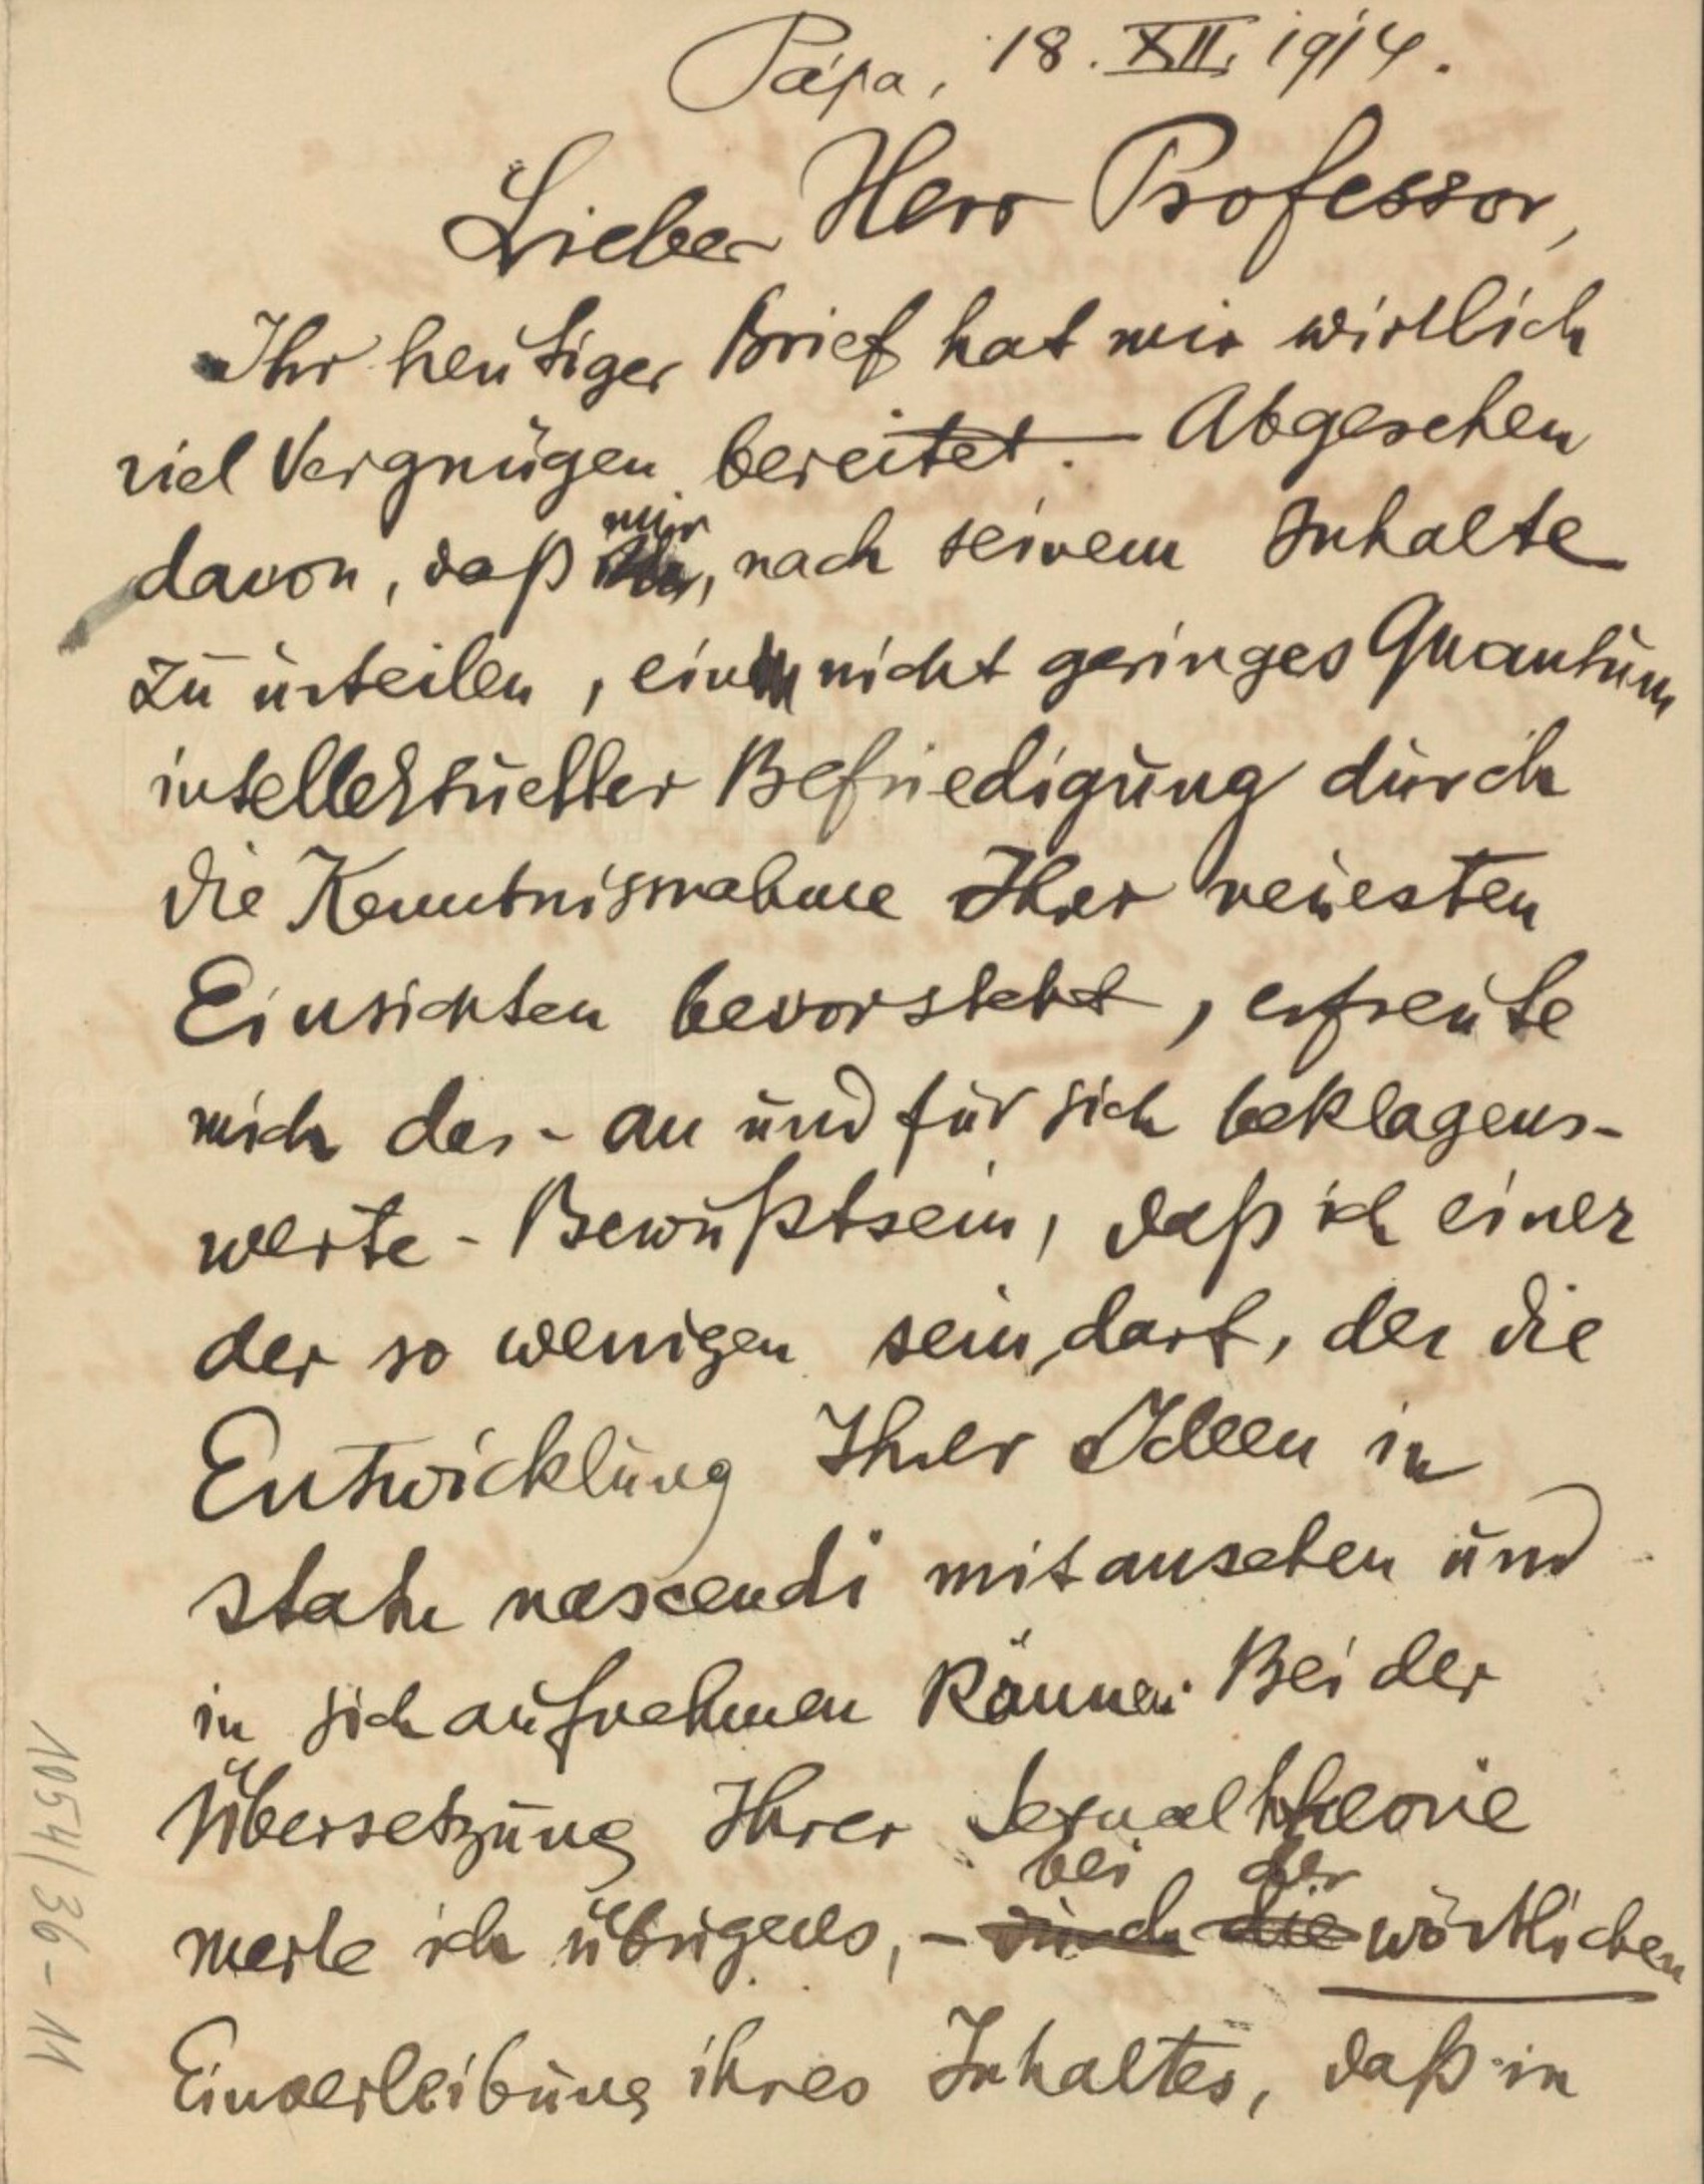 Pápa, 18. XII. 1914.
Lieber Herr Professor,
Ihr heutiger Brief hat mir wirklich
viel Vergnügen bereitet. — Abgesehen
davon, daß mir, nach seinem Inhalte
zu urteilen, ein nicht geringes Quantum
intellektueller Befriedigung durch
die Kenntnisnahme Ihrer neuesten
Einsichten bevorsteht, erfreute
mich das - an und für sich beklagens-
werte - Bewußtsein, daß ich einer
der so wenigen sein darf, der die
Entwicklung Ihrer Ideen in
statu nascendi mitansehen und
in sich aufnehmen können. Bei der
Übersetzung Ihrer Sexualtheorie
merke ich übrigens, - bei der
durch die wörtlichen
Einverleibung ihres Inhaltes, daß in
1054/36-11